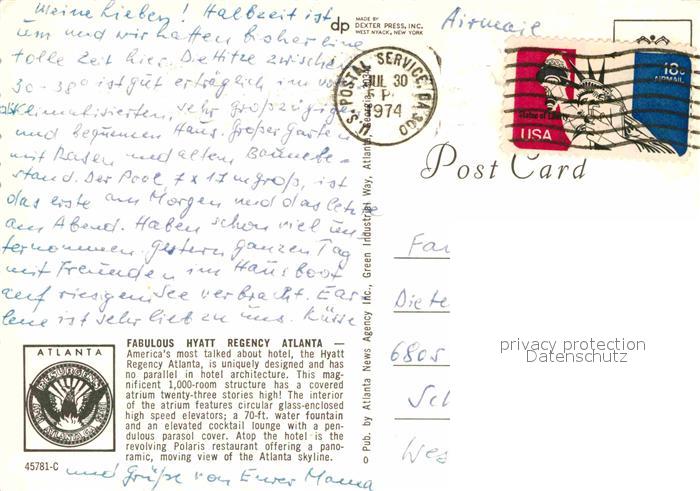 Meine Lieben! Halbzeit ist
um und wir hatten bisher eine
tolle Zeit hier. Die Hitze zwischen
30-38° ist gut erträglich im voll
klimatisierten, sehr großzügigen
und bequemen Haus. Großer Garten
mit Rasen und altem Baumbe-
stand. Der Pool, 7 x 17 m groß, ist
das erste am Morgen und das letzte
am Abend. Haben schon viel un
ternommen. Gestern ganzen Tag
mit Freunden im Hausboot
auf riesigem See verbracht. Ear-
lene ist sehr lieb zu uns. Küsse
und Grüße von Eurer Mama
dp MADE BY
DEXTER PRESS, INC.
WEST NYACK, NEW YORK
Airmail
U.S. POSTAL SERVICE, GA 300
JUL 30
P
1974
18c
AIRMAIL
Statue of Liberty
USA
Post Card
Diete
6805
Wes
privacy protection
Datenschutz
Pub. by Atlanta News Agency Inc., Green Industrial Way, Atlanta, Georgia
ATLANTA
FABULOUS HYATT REGENCY ATLANTA —
America's most talked about hotel, the Hyatt
Regency Atlanta, is uniquely designed and has
no parallel in hotel architecture. This mag-
nificent 1,000-room structure has a covered
atrium twenty-three stories high! The interior
of the atrium features circular glass-enclosed
high speed elevators; a 70-ft. water fountain
and an elevated cocktail lounge with a pen-
dulous parasol cover. Atop the hotel is the
revolving Polaris restaurant offering a pano-
ramic, moving view of the Atlanta skyline.
45781-C